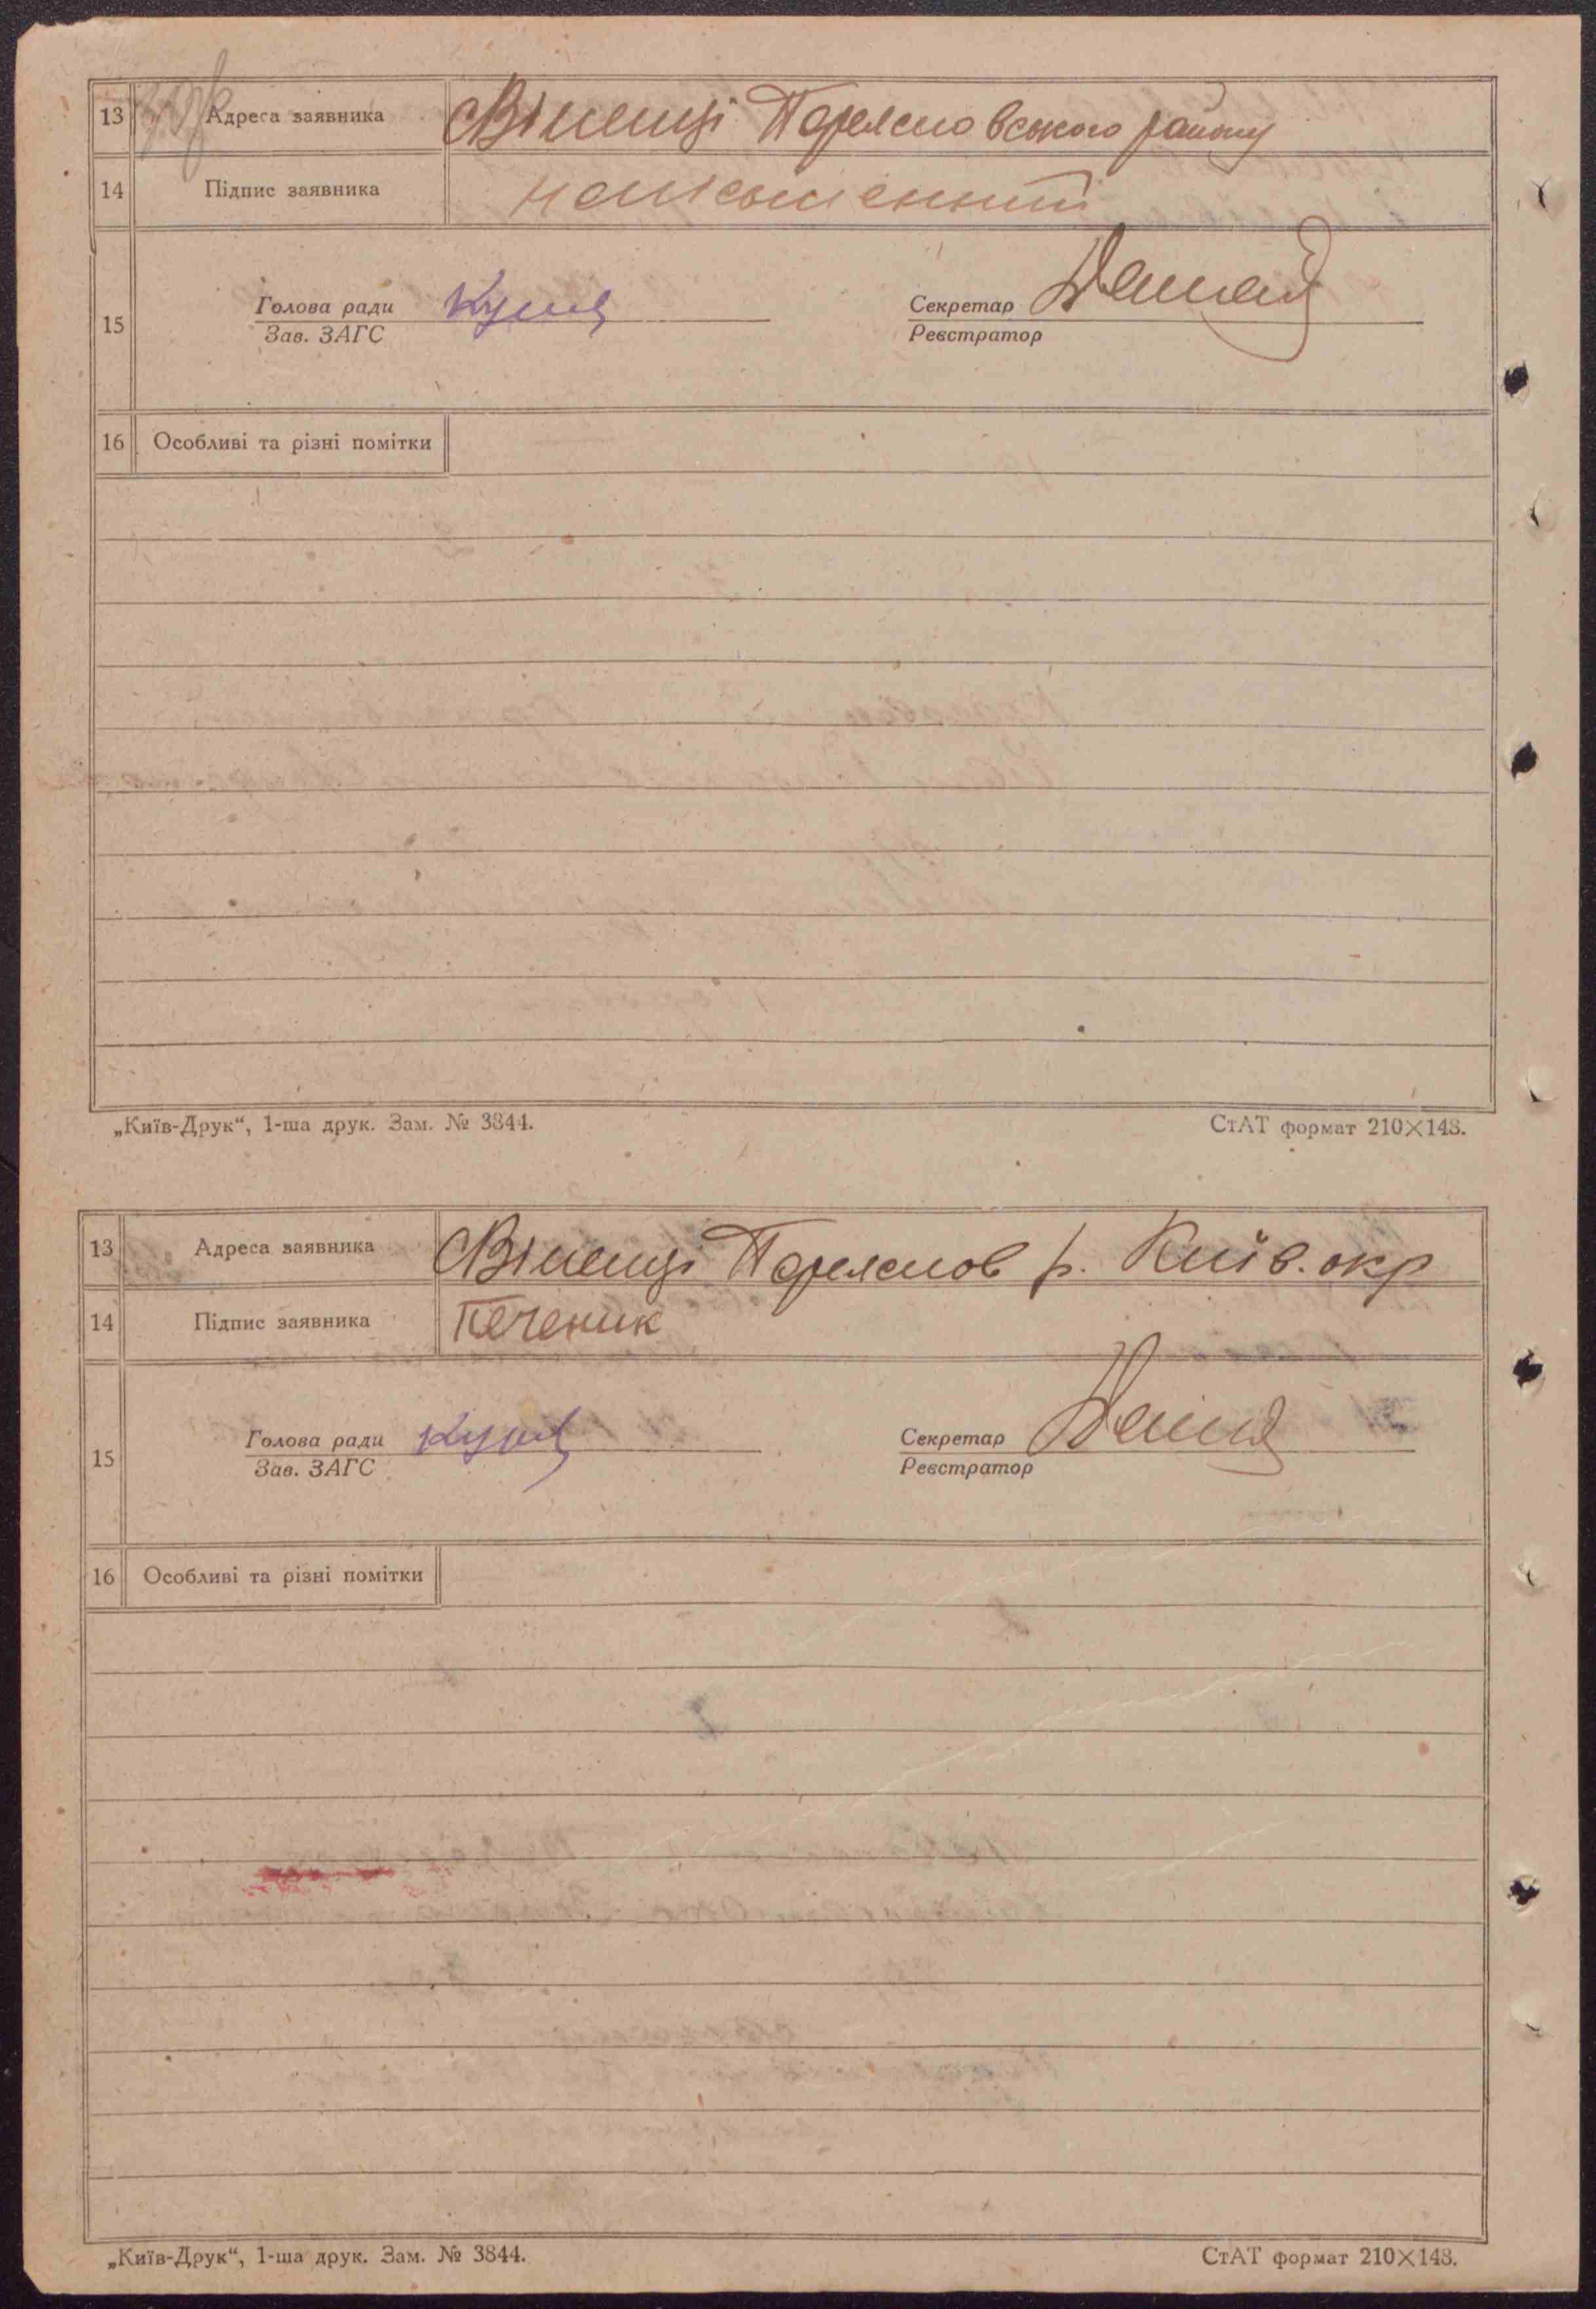 13 Адреса заявника Вієнці Переяслов вського району
14 Підпис заявника неписьменний
15 Голова ради Секретар
Зав. ЗАГС Реєстратор
16 Особливі та різні помітки
„Київ-Друк“, 1-ша друк. Зам. № 3844. СтАТ формат 210×148.
13 Адреса заявника Переяслов р. Київ. окр
14 Підпис заявника Печеник
15 Голова ради Секретар
Зав. ЗАГС Реєстратор
16 Особливі та різні помітки
„Київ-Друк“, 1-ша друк. Зам. № 3844. СтАТ формат 210×148.